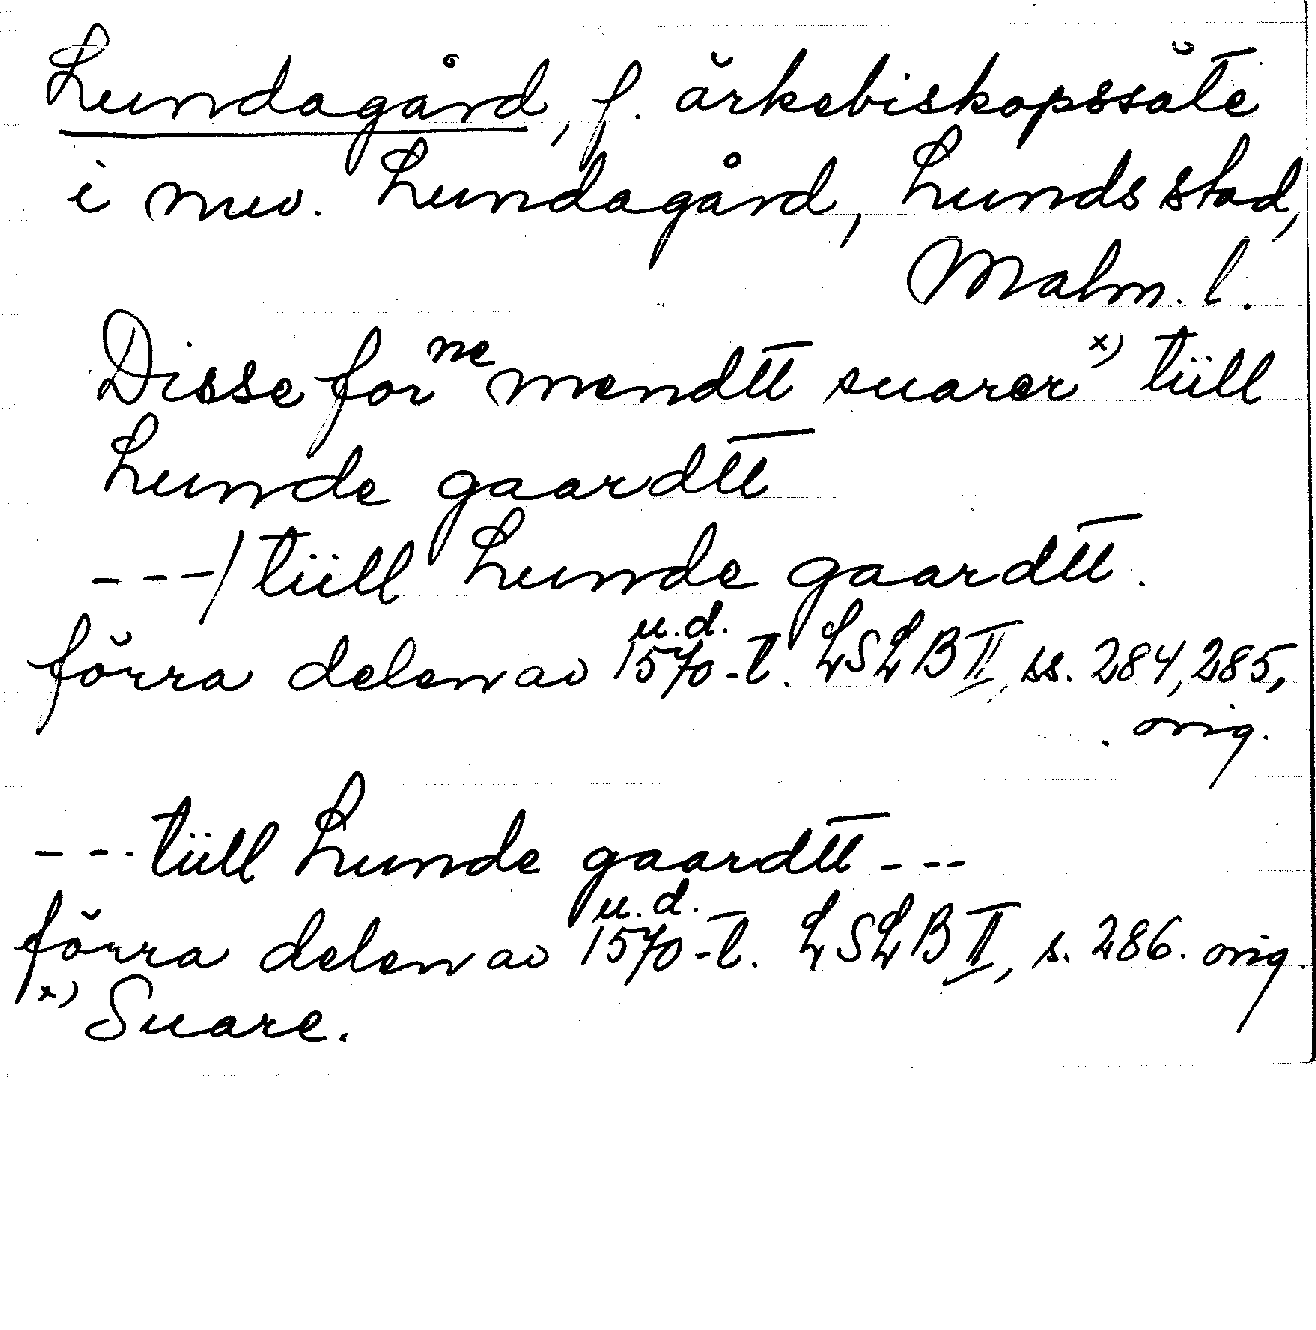 Lundagård, f. ärkebiskopssäte
i nuv. Lundagård, Lunds stad,
Malm. l.
Disse for ne mendtt suarer x) tüll
Lunde gaardtt
---/ tüll Lunde gaardtt.
förra delen av u.d. 1570-t. LSLB II, ss. 284, 285,
orig.
--- tüll Lunde gaardtt ---
förra delen av u.d. 1570-t. LSLB II, s. 286. orig.
x) Suare.